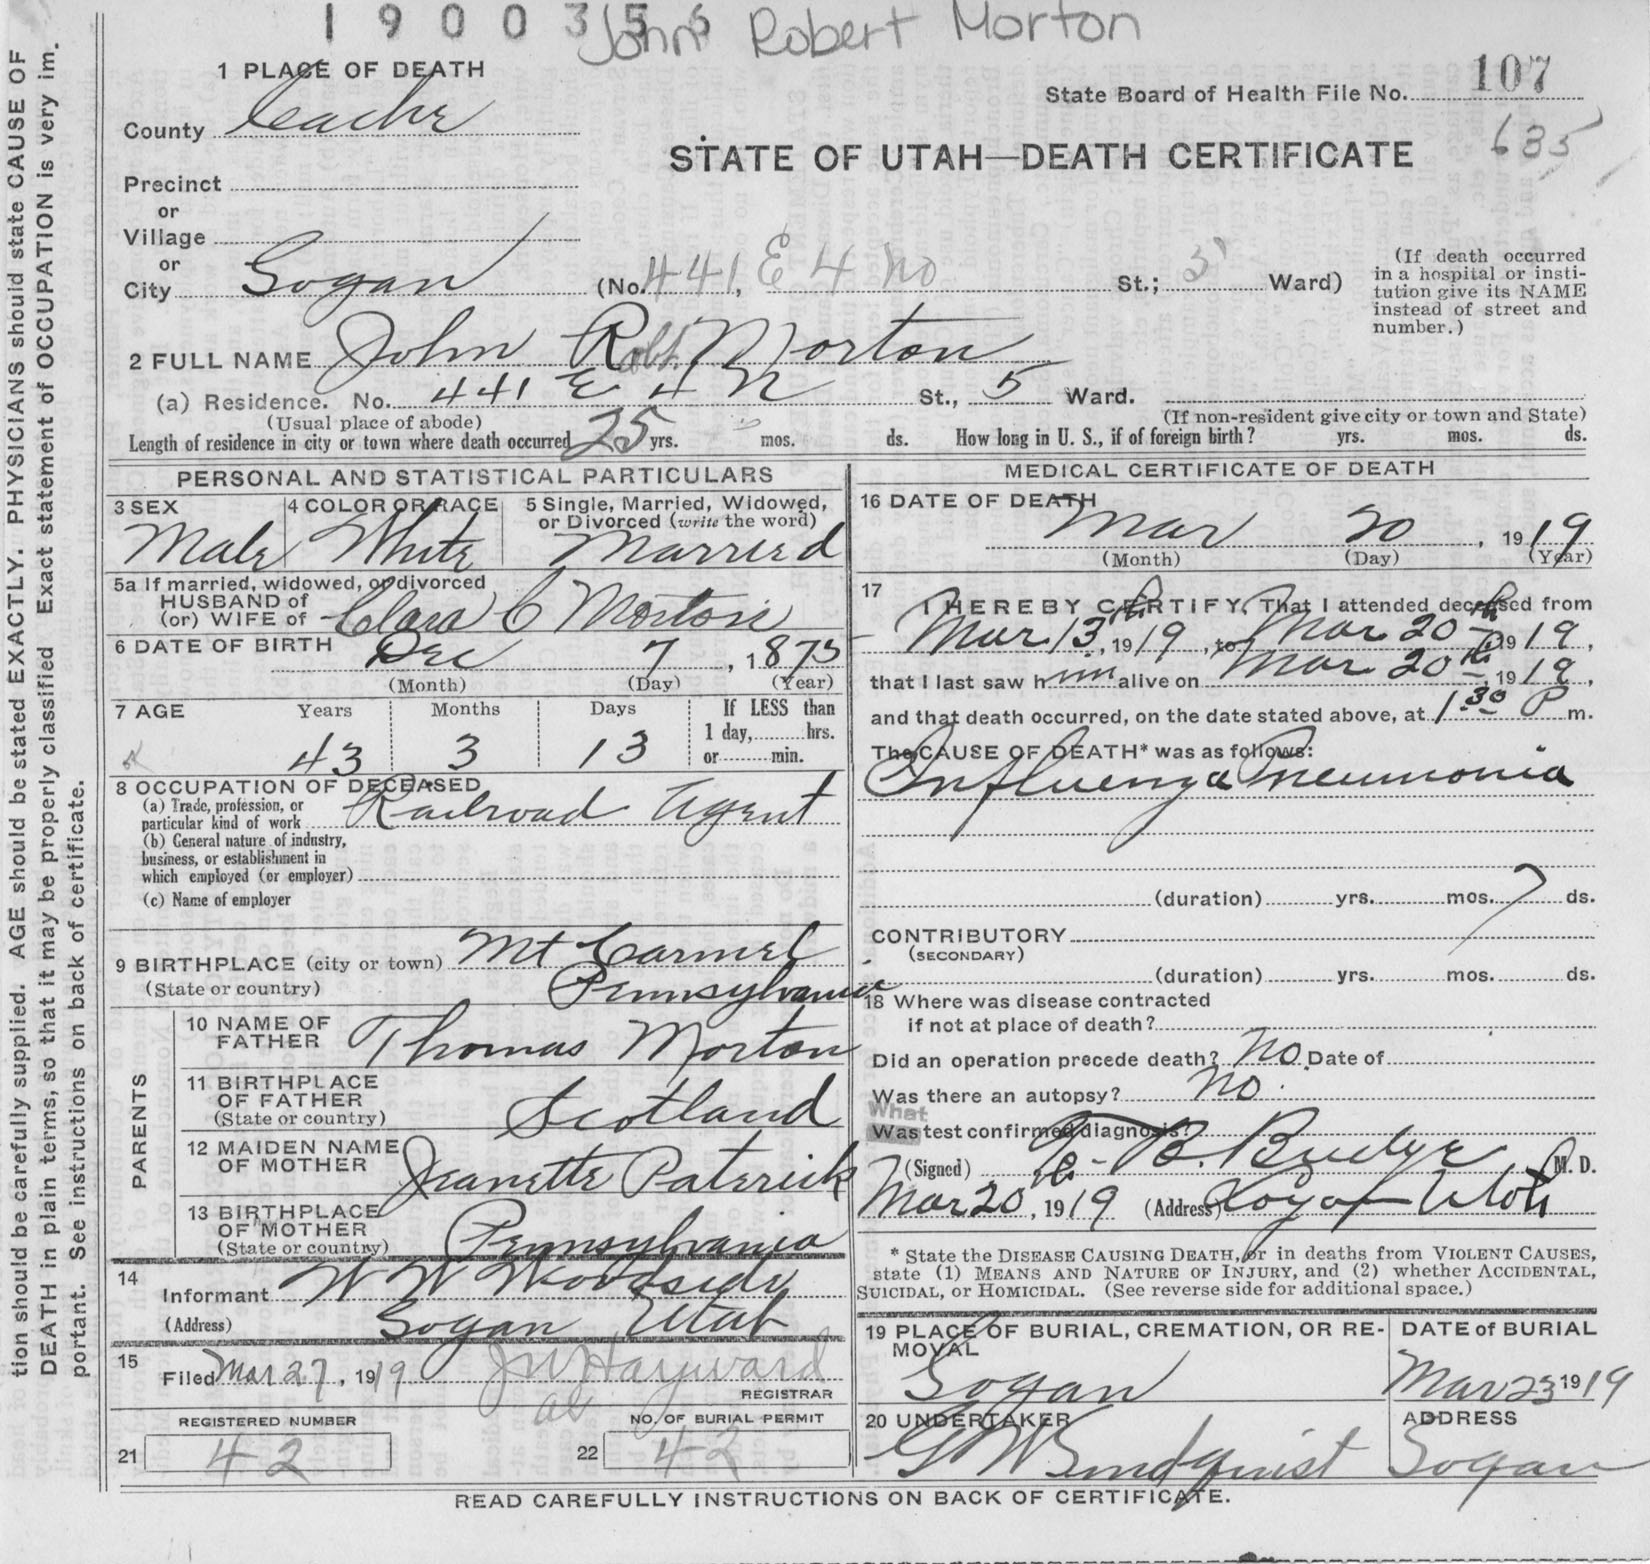 1900356
John Robert Morton
1 PLACE OF DEATH
State Board of Health File No. 107
635
County Cache
STATE OF UTAH—DEATH CERTIFICATE
Precinct
or
Village
or
City Logan (No. 441, E 4 No St.; 5 Ward)
(If death occurred
in a hospital or insti-
tution give its NAME
instead of street and
number.)
2 FULL NAME John Robt. Morton
(a) Residence. No. 441 E 4 N St., 5 Ward.
(Usual place of abode) (If non-resident give city or town and State)
Length of residence in city or town where death occurred 25 yrs. mos. ds. How long in U. S., if of foreign birth? yrs. mos. ds.
PERSONAL AND STATISTICAL PARTICULARS
3 SEX
Male
4 COLOR OR RACE
White
5 Single, Married, Widowed,
or Divorced (write the word)
Married
5a If married, widowed, or divorced
HUSBAND of
(or) WIFE of Clara C Morton
6 DATE OF BIRTH Dec 7, 1875
(Month) (Day) (Year)
7 AGE Years Months Days If LESS than
1 day, hrs.
43 3 13 or min.
8 OCCUPATION OF DECEASED
(a) Trade, profession, or
particular kind of work Railroad Agent
(b) General nature of industry,
business, or establishment in
which employed (or employer)
(c) Name of employer
9 BIRTHPLACE (city or town) Mt Carmel
(State or country) Pennsylvania
PARENTS
10 NAME OF
FATHER Thomas Morton
11 BIRTHPLACE
OF FATHER
(State or country) Scotland
12 MAIDEN NAME
OF MOTHER Jeanette Paterick
13 BIRTHPLACE
OF MOTHER
(State or country) Pennsylvania
14
Informant W W Woodside
(Address) Logan Utah
15
Filed Mar 27, 1919 J W Hayward
REGISTRAR
REGISTERED NUMBER
21 42
NO. OF BURIAL PERMIT
22 42
MEDICAL CERTIFICATE OF DEATH
16 DATE OF DEATH
Mar 20, 1919
(Month) (Day) (Year)
17
I HEREBY CERTIFY, That I attended deceased from
Mar 13th, 1919, to Mar 20th 1919,
that I last saw him alive on Mar 20th, 1919,
and that death occurred, on the date stated above, at 1.30 P m.
The CAUSE OF DEATH* was as follows:
Influenza Pneumonia
(duration) yrs. mos. 7 ds.
CONTRIBUTORY
(SECONDARY)
(duration) yrs. mos. ds.
18 Where was disease contracted
if not at place of death?
Did an operation precede death? No. Date of
Was there an autopsy? No.
What
Was test confirmed diagnosis?
(Signed) B. Budge M. D.
Mar 20th, 1919 (Address) Logan Utah
* State the DISEASE CAUSING DEATH, or in deaths from VIOLENT CAUSES,
state (1) MEANS AND NATURE OF INJURY, and (2) whether ACCIDENTAL,
SUICIDAL, or HOMICIDAL. (See reverse side for additional space.)
19 PLACE OF BURIAL, CREMATION, OR RE-
MOVAL
Logan
DATE of BURIAL
Mar 23 1919
20 UNDERTAKER
G W Lindquist
ADDRESS
Logan
READ CAREFULLY INSTRUCTIONS ON BACK OF CERTIFICATE.
tion should be carefully supplied. AGE should be stated EXACTLY. PHYSICIANS should state CAUSE OF
DEATH in plain terms, so that it may be properly classified Exact statement of OCCUPATION is very im.
portant. See instructions on back of certificate.